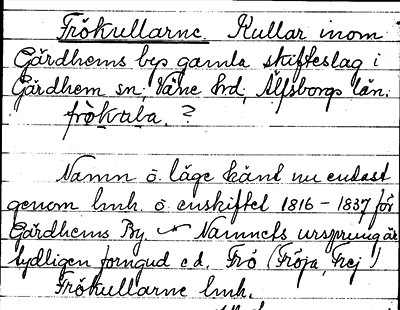 Frökullarne. Kullar inom
Gärdhems bys gamla skifteslag i
Gärdhem sn; Väne hrd, Älfsborgs län.
frökula. ?
Namn o. läge känt nu endast
genom lmh. o. enskiftet 1816-1837 för
Gärdhems By. Namnets ursprung är
tydligen forngud ed. Frö (Fröja, Frej)
Frökullarne lmh.